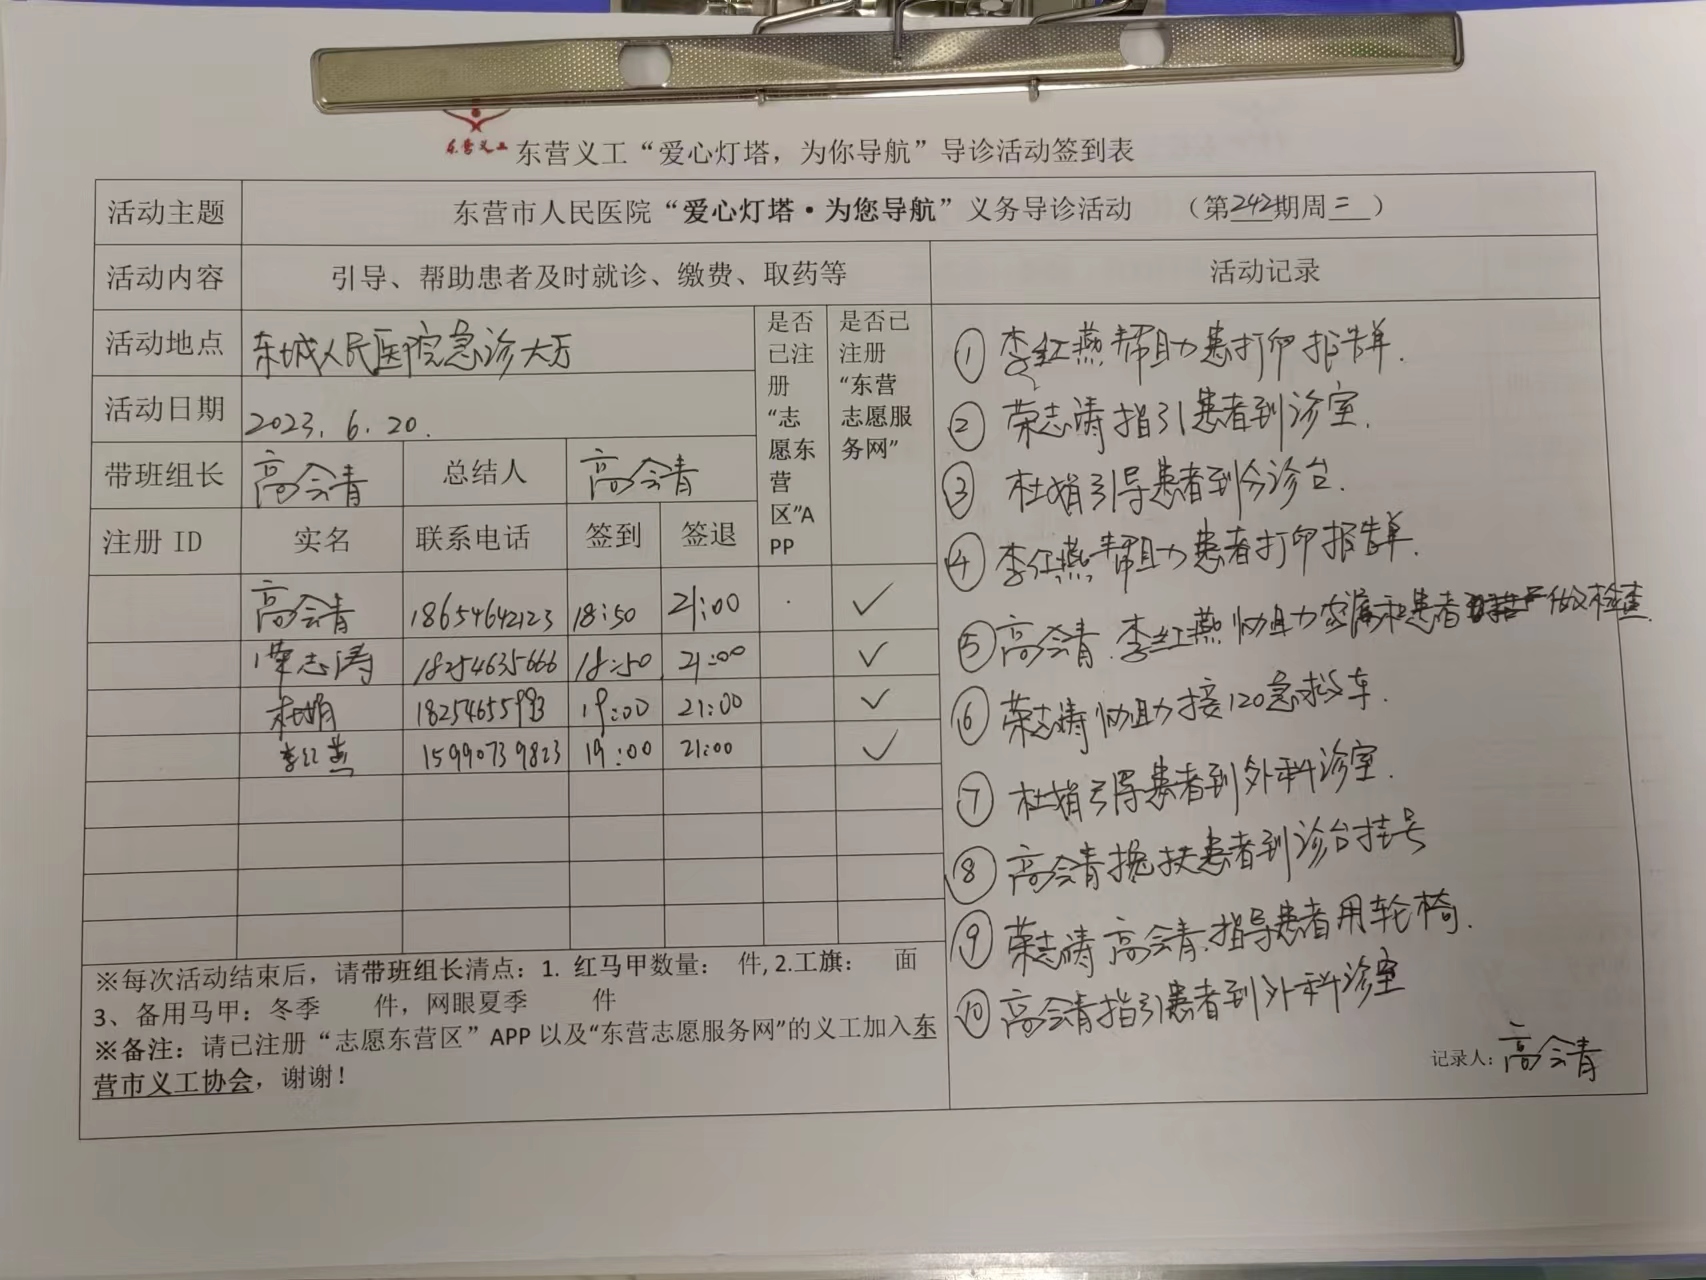 东营义工
东营义工“爱心灯塔，为你导航”导诊活动签到表
活动主题 东营市人民医院“爱心灯塔·为您导航”义务导诊活动 （第242期周二）
活动内容 引导、帮助患者及时就诊、缴费、取药等 活动记录
活动地点 东城人民医院急诊大厅
活动日期 2023.6.20.
带班组长 高会青 总结人 高会青
是否
已注
册
“志
愿东
营
区”A
PP
是否已
注册
“东营
志愿服
务网”
注册 ID 实名 联系电话 签到 签退
高会青 18654642123 18:50 21:00 ✓
荣志涛 18254635666 18:50 21:00 ✓
杜娟 18254655993 19:00 21:00 ✓
李红燕 15990739823 19:00 21:00 ✓
※每次活动结束后，请带班组长清点：1. 红马甲数量： 件, 2.工旗： 面
3、备用马甲：冬季 件，网眼夏季 件
※备注：请已注册“志愿东营区”APP 以及“东营志愿服务网”的义工加入东
营市义工协会，谢谢！
① 李红燕帮助患打印报告单.
② 荣志涛指引患者到诊室.
③ 杜娟引导患者到分诊台.
④ 李红燕帮助患者打印报告单.
⑤ 高会青.李红燕协助患者做检查.
⑥ 荣志涛协助接120急救车.
⑦ 杜娟引导患者到外科诊室.
⑧ 高会青搀扶患者到诊台挂号
⑨ 荣志涛 高会青.指导患者用轮椅.
⑩ 高会青指引患者到外科诊室
记录人：高会青